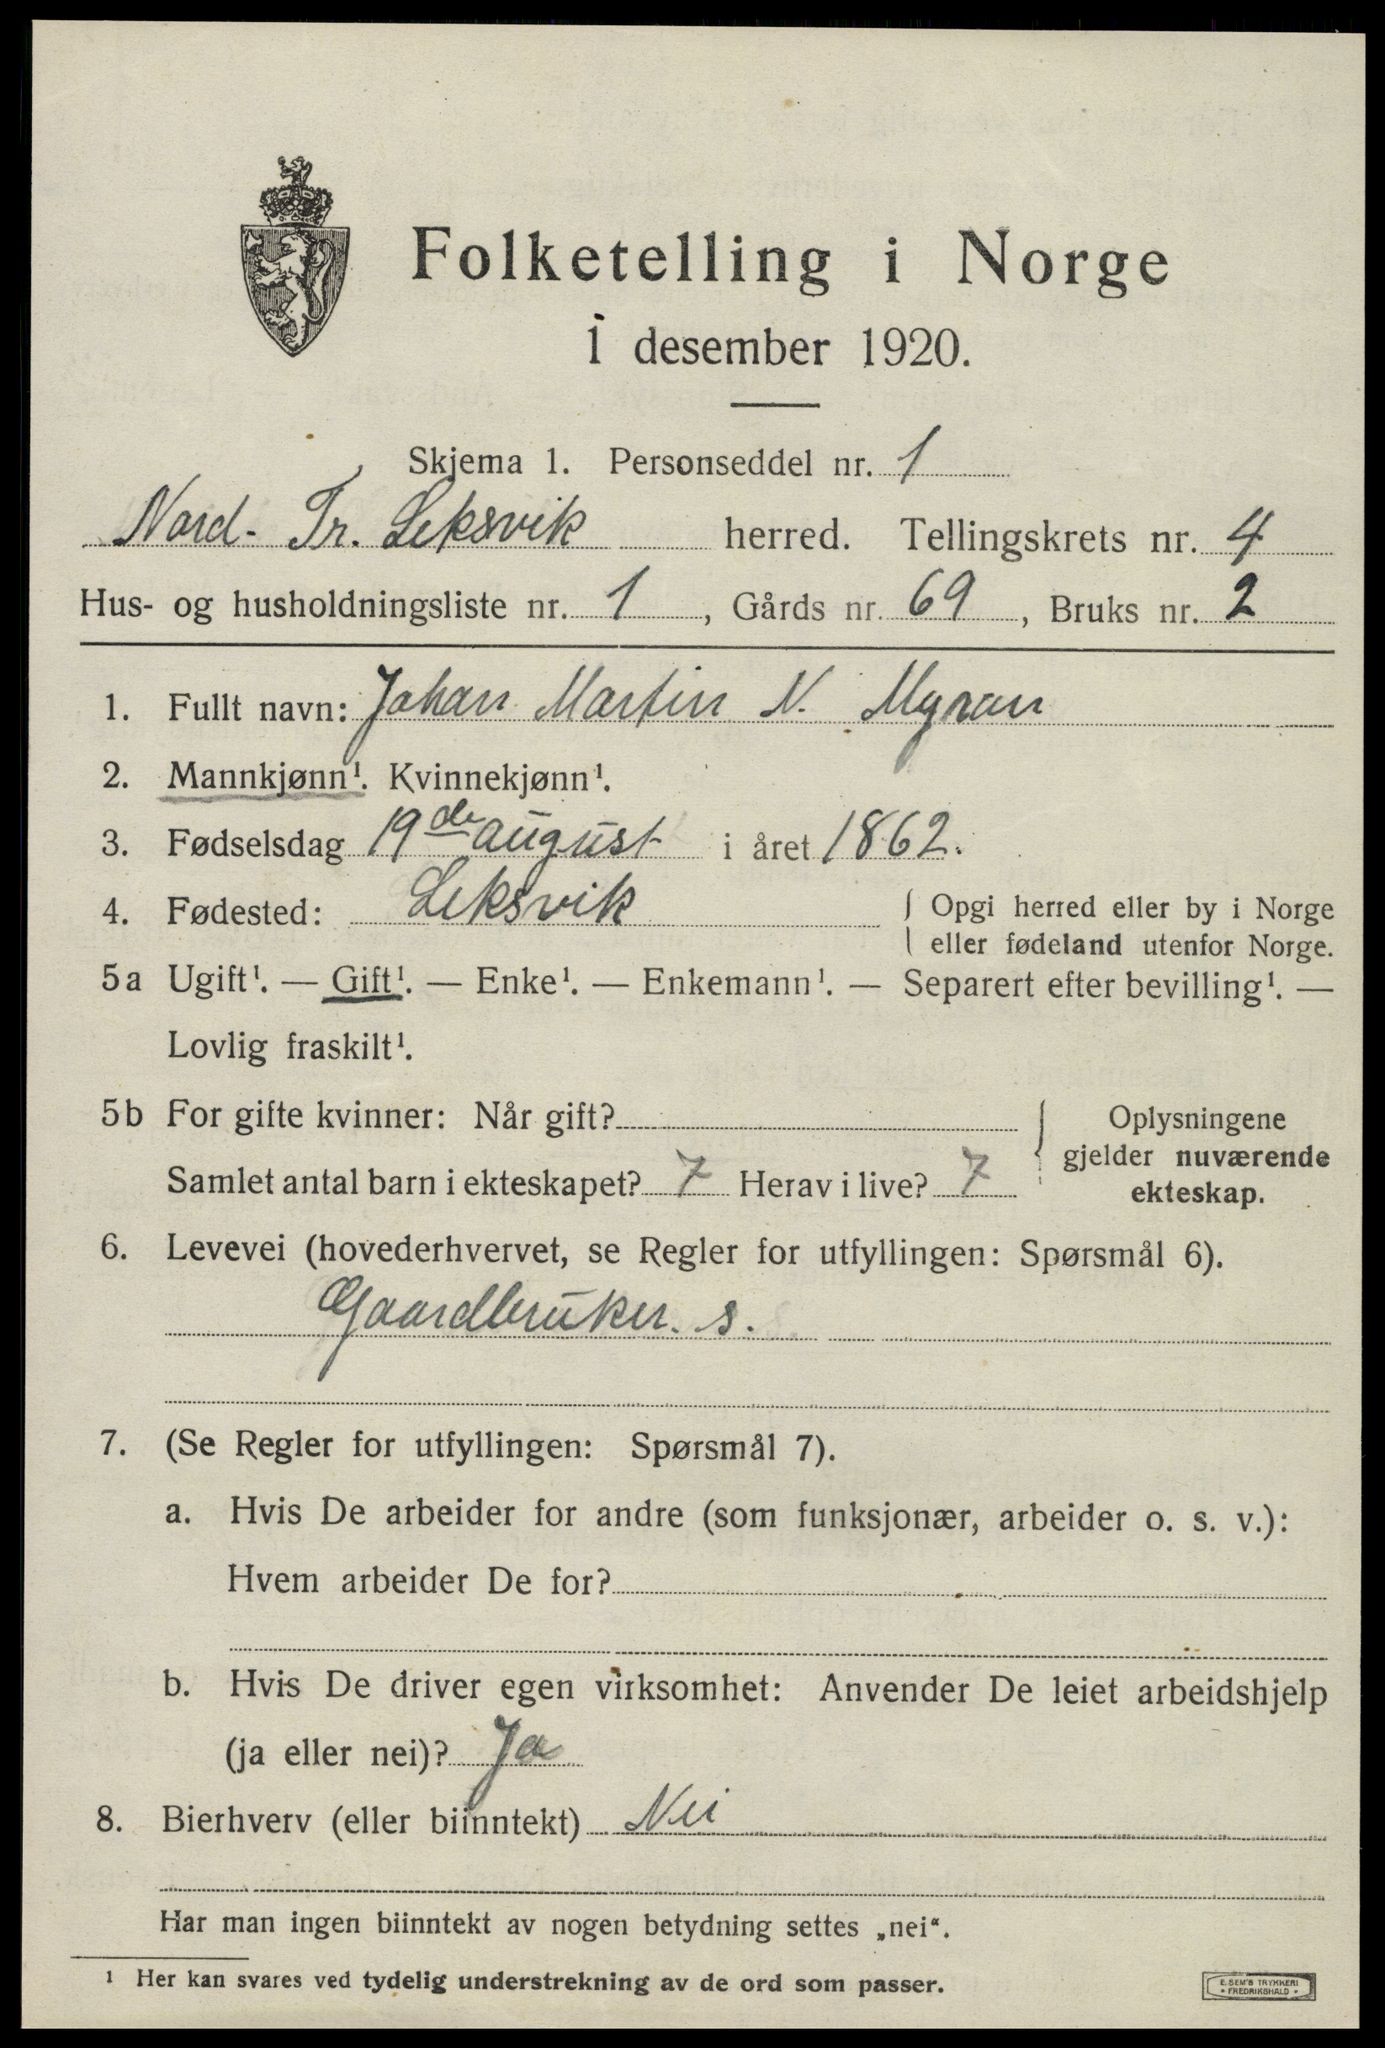 Folketelling i Norge
1 desember 1920.
Skjema 1. Personseddel nr. 1
Nord-Tr. Leksvik herred. Tellingskrets nr. 4
Hus- og husholdningsliste nr. 1, Gårds nr. 69, Bruks nr. 2
1. Fullt navn: Johan Martin N. Myran
2. Mannkjønn¹. Kvinnekjønn¹.
3. Fødselsdag 19de august i året 1862.
4. Fødested: Leksvik { Opgi herred eller by i Norge
eller fødeland utenfor Norge.
5a Ugift¹. — Gift¹. — Enke¹. — Enkemann¹. — Separert efter bevilling¹. —
Lovlig fraskilt¹.
5b For gifte kvinner: Når gift? { Oplysningene
gjelder nuværende
Samlet antal barn i ekteskapet? 7 Herav i live? 7 ekteskap.
6. Levevei (hovederhvervet, se Regler for utfyllingen: Spørsmål 6).
Gaardbruker. s.
7. (Se Regler for utfyllingen: Spørsmål 7).
a. Hvis De arbeider for andre (som funksjonær, arbeider o. s. v.):
Hvem arbeider De for?
b. Hvis De driver egen virksomhet: Anvender De leiet arbeidshjelp
(ja eller nei)? Ja
8. Bierhverv (eller biinntekt) Nei
Har man ingen biinntekt av nogen betydning settes „nei“.
¹ Her kan svares ved tydelig understrekning av de ord som passer.
E. SEM'S TRYKKERI
• FREDRIKSHALD •